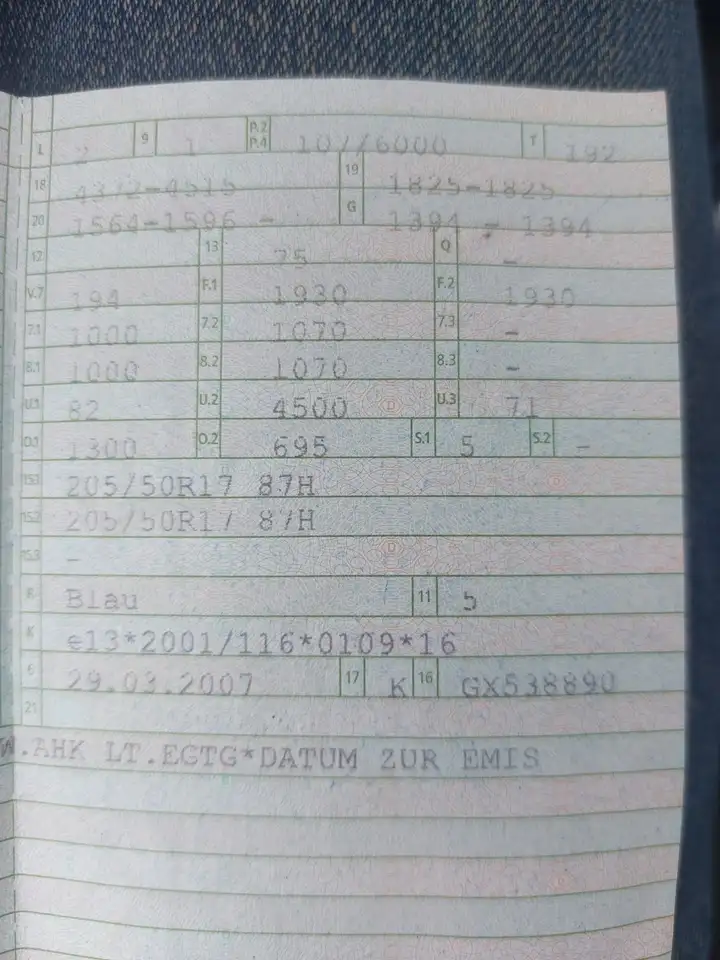 L 2 9 1 P.2 P.4 107/6000 T 192
18 4372-4515 19 1825-1825
20 1564-1596 - G 1394 - 1394
12 13 75 Q -
V.7 194 F.1 1930 F.2 1930
7.1 1000 7.2 1070 7.3 -
8.1 1000 8.2 1070 8.3 -
U.1 82 U.2 4500 U.3 71
O.1 1300 O.2 695 S.1 5 S.2 -
15.1 205/50R17 87H
15.2 205/50R17 87H
15.3 -
R Blau 11 5
K e13*2001/116*0109*16
6 29.03.2007 17 K 16 GX538890
21
W.AHK LT.EGTG*DATUM ZUR EMIS